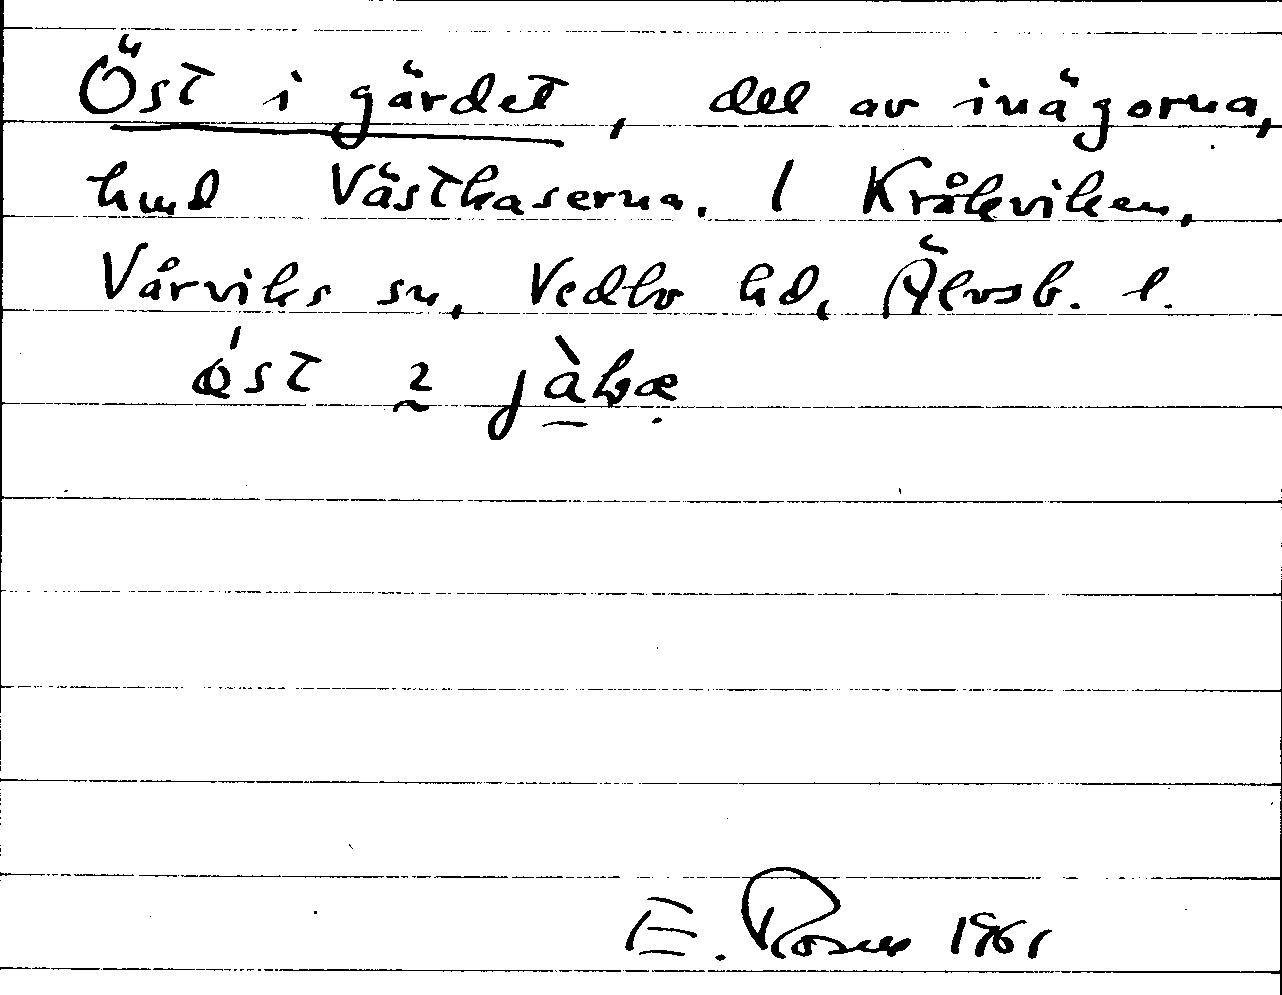 Öst i gärdet, del av inägorna,
hmd Västkaserna. I Kråkviken,
Vårviks sn, Vedbo hd, Älvsb. l.
E. Rosén 1961